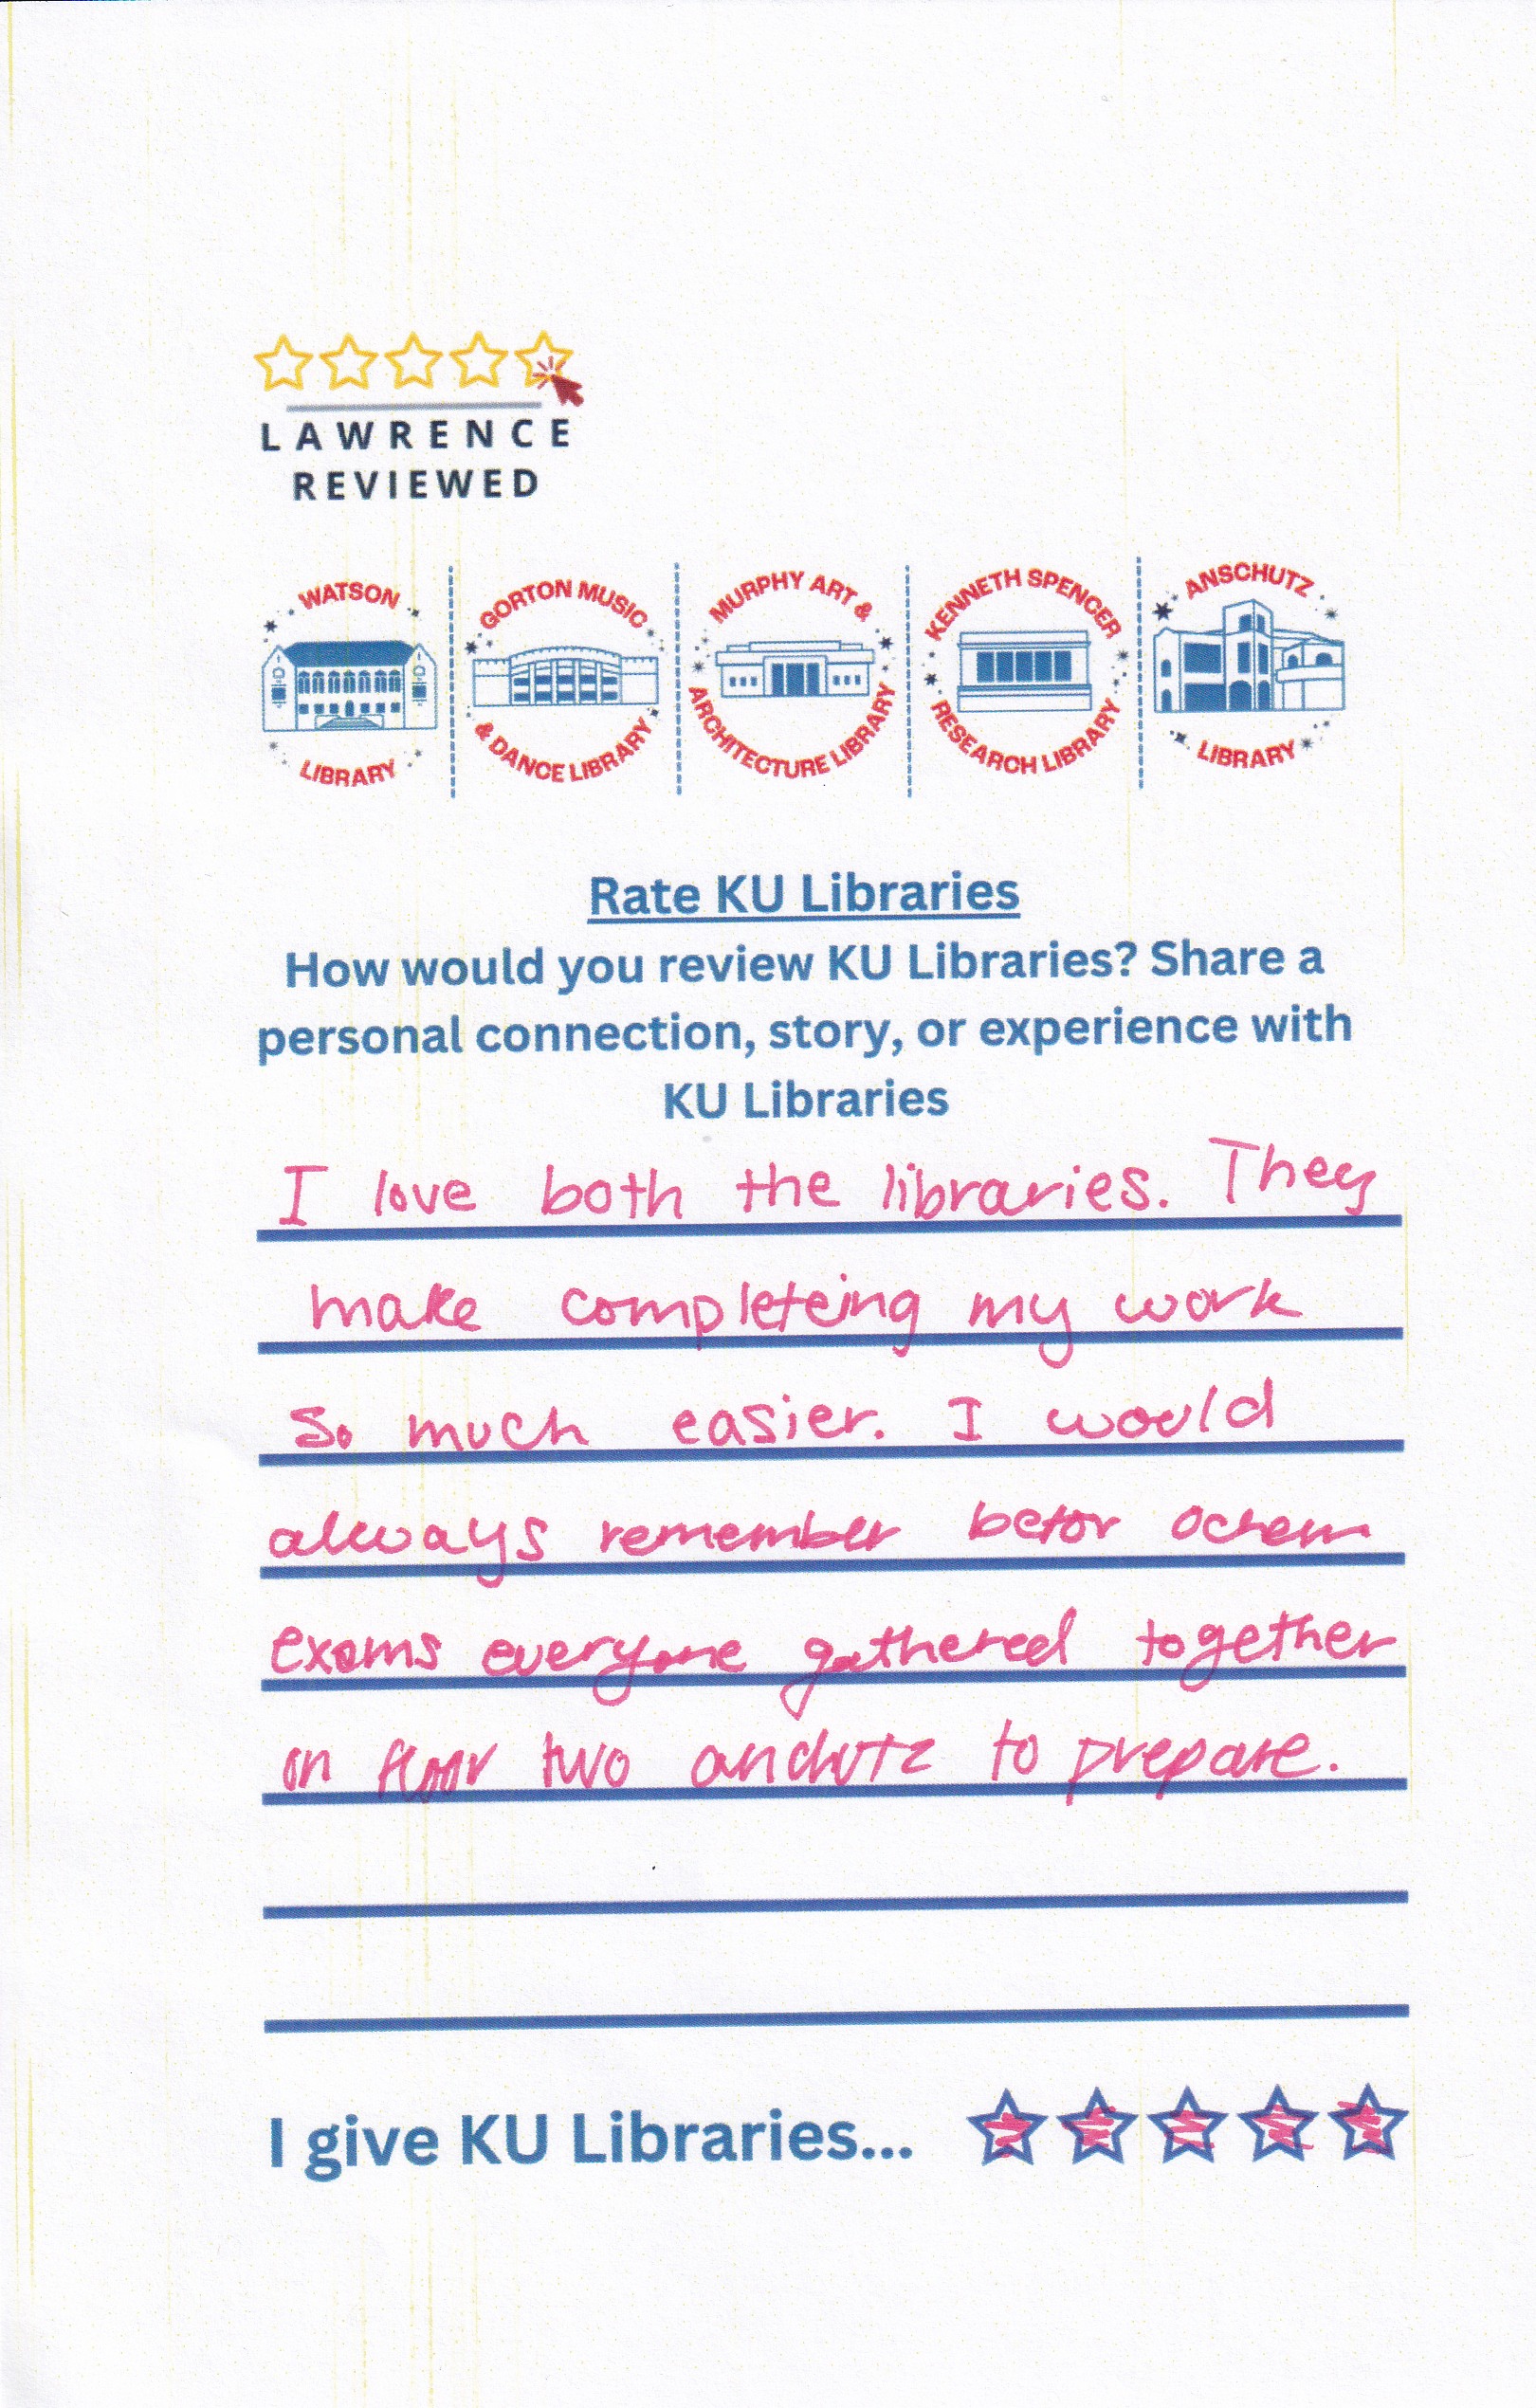 LAWRENCE
REVIEWED
WATSON LIBRARY
GORTON MUSIC & DANCE LIBRARY
MURPHY ART & ARCHITECTURE LIBRARY
KENNETH SPENCER RESEARCH LIBRARY
ANSCHUTZ LIBRARY
Rate KU Libraries
How would you review KU Libraries? Share a
personal connection, story, or experience with
KU Libraries
I love both the libraries. They
make completeing my work
so much easier. I would
always remember befor ochem
exams everyone gathered together
on floor two anchutz to prepare.
I give KU Libraries...